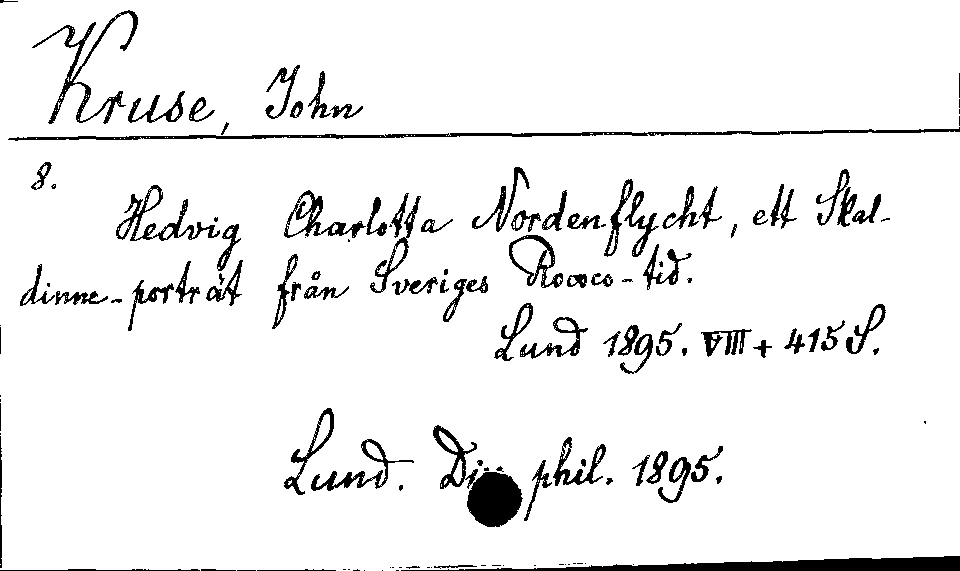 Kruse, John
8.
Hedvig Charlotta Nordenflycht, ett Skal-
dinne-porträt från Sveriges Rococo-tid.
Lund 1895. VIII + 415 S.
Lund. phil. 1895.